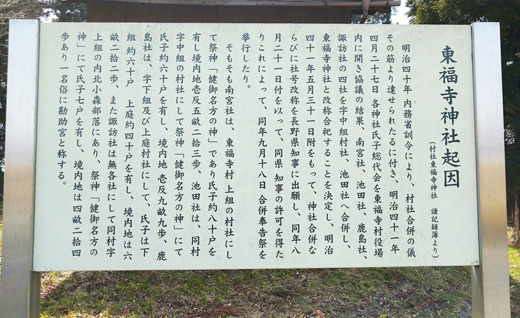 東福寺神社起因
(村社東福寺神社 諸記録簿より)
明治四十年 内務省訓令により、村社合併の儀
その筋より達せられたるに付き、明治四十一年
四月二十七日 各神社氏子総代会を東福寺村役場
内に開き協議の結果、南宮社、池田社、鹿島社、
諏訪社の四社を字中組村社、池田社へ合併し、
東福寺神社と改称合祀することを決定し、明治
四十一年五月三十一日附をもって、神社合併な
らびに社号改称を長野県知事に出願し、同年八
月二十一日付を以って、同県知事の許可を得た
りこれによって、同年九月十八日 合併奉告祭を
挙行したり。
そもそも南宮社は、東福寺村 上組の村社にし
て祭神「健御名方の神」であり氏子約八十戸を
有し境内地壱反五畝二十三歩、池田社は、同村
字中組の村社にして祭神「健御名方の神」にて
氏子約六十戸を有し、境内地 壱反九畝九歩、鹿
島社は、字下組及び上庭村社にして、氏子は下
組 約六十戸 上庭約四十戸を有し、境内地は六
畝二十二歩、また諏訪社は無各社にして同村字
上組の内北小森部落にあり、祭神「健御名方の
神」にて氏子七戸を有し、境内地は四畝二十四
歩あり一名俗に勘助宮と称する。